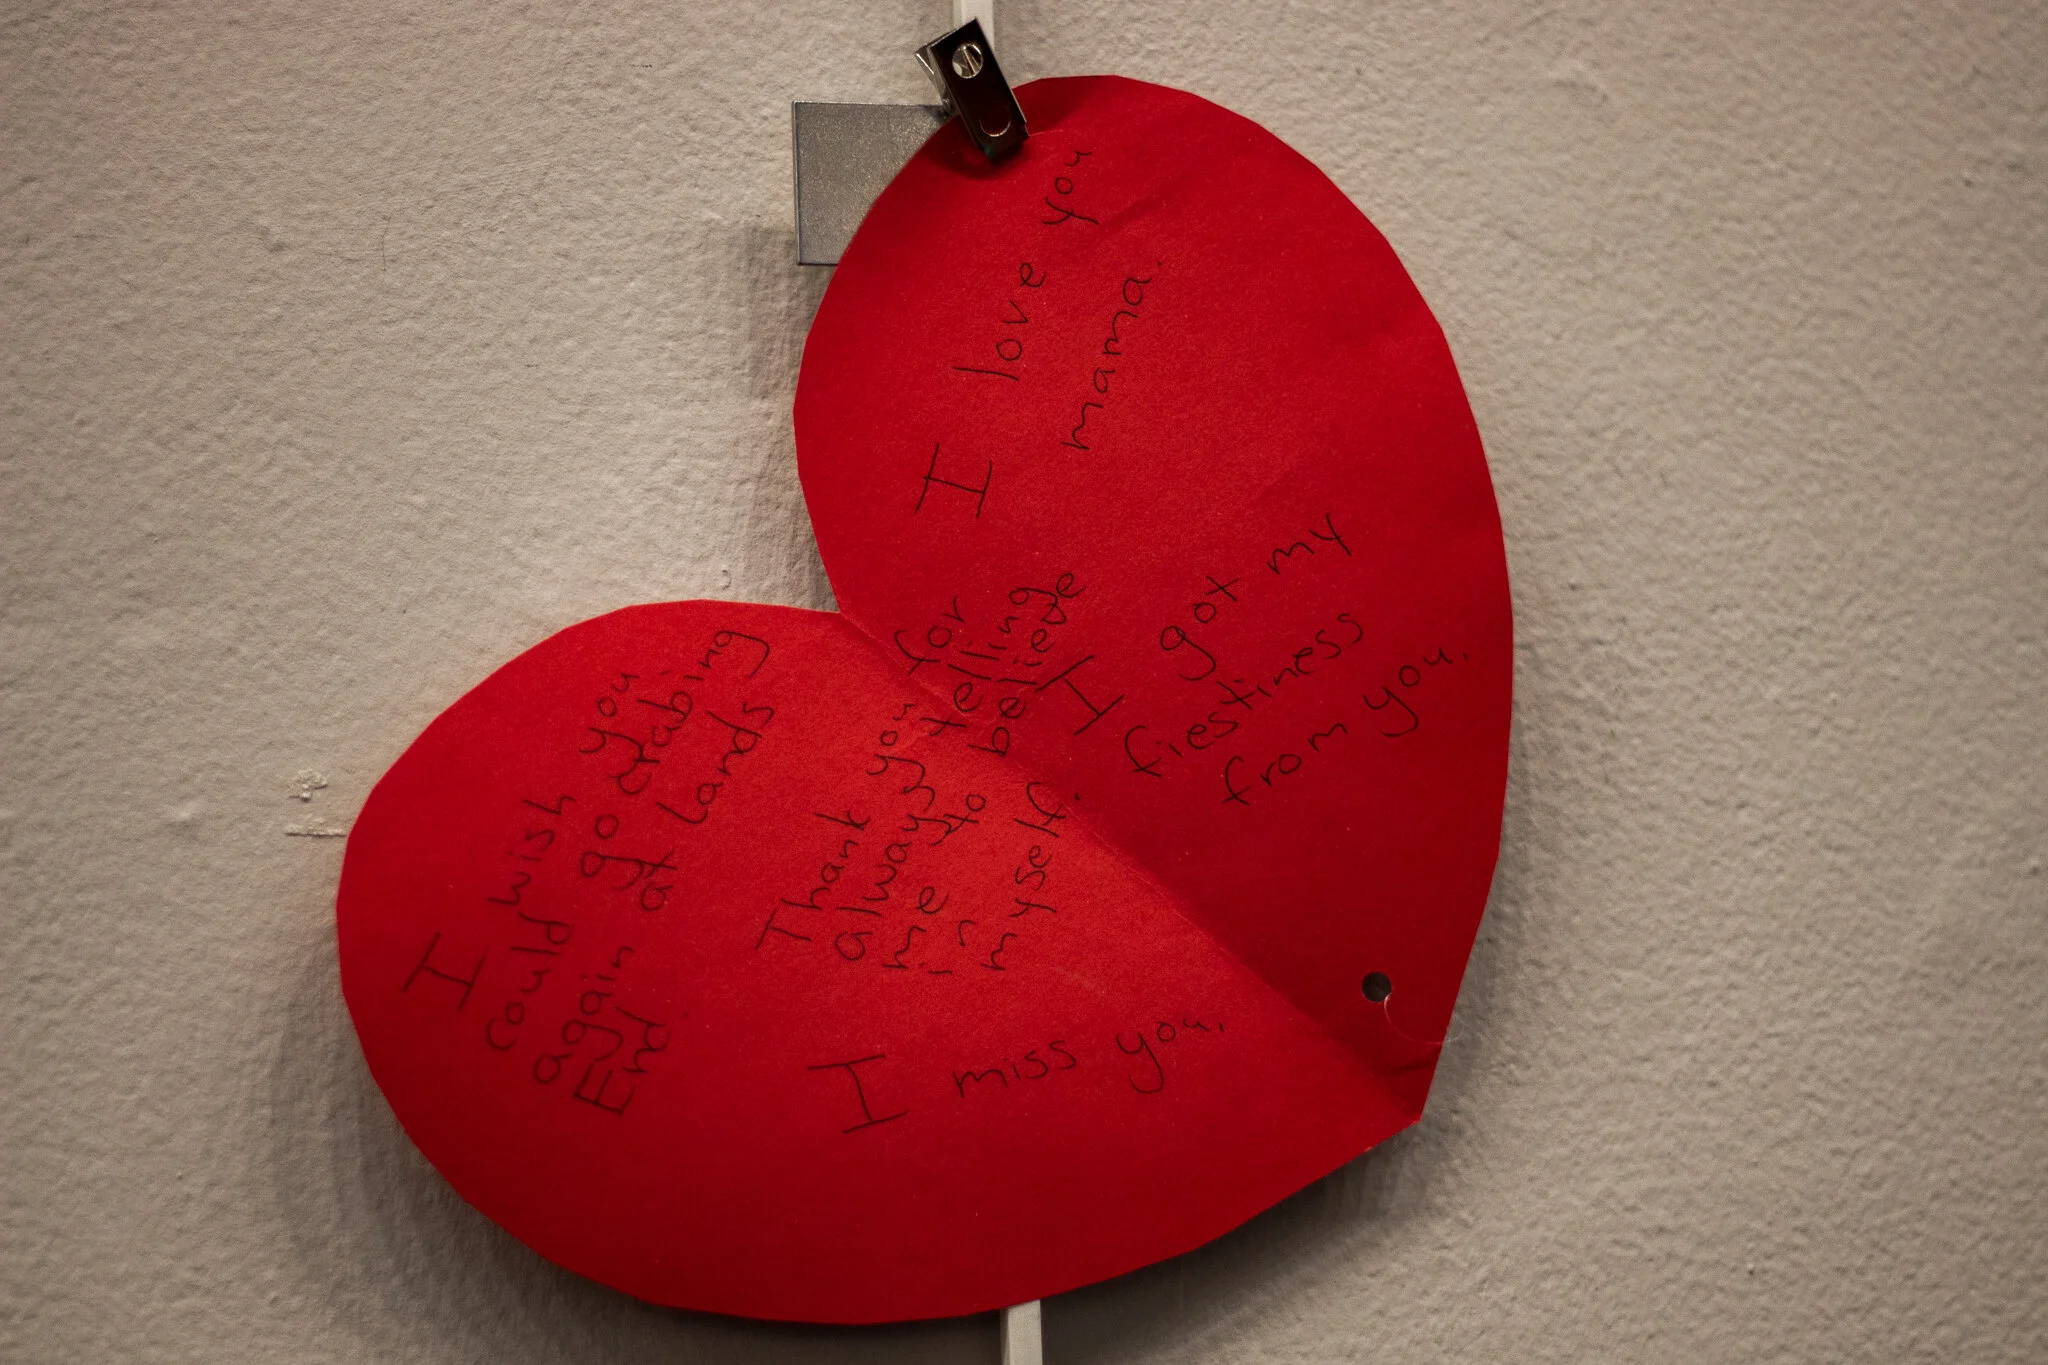 I love you
mama.
I got my
fiestiness
from you.
Thank you for
always telling
me to believe
in
myself.
I wish you
could go crabing
again at Lands
End.
I miss you.